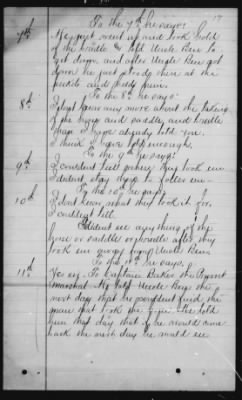 17
To the 7th he says:
7th They just went up and took hold
of the bridle & told Uncle Ben to
get down and after Uncle Ben got
down he just
and
To the 8th he says:
8th I don't know any more about the taking
of the buggy and saddle, and bridle
than I have already told you.
I think I have told enough.
To the 9th he says:
9th I couldn't tell where they took em.
I didn't stay to follow em.
To the 10th he says:
10th I don't know what they took it for,
I couldn't tell.
I didn't see anything of the
horse or saddle or bridle after they
took em away from Uncle Ben
To the 11th he says,
11th Yes sir. To Captain Baker the Provost
Marshal. He told Uncle Ben the
next day that he couldn't find the
man that took the horse. He told
him that day that if he would come
back the next day he would see